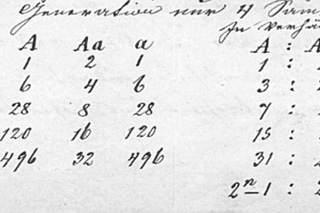 Generation nur 4 Sam
In Verhä
A Aa a A : A
1 2 1 1 :
6 4 6 3 : 2
28 8 28 7 :
120 16 120 15 :
496 32 496 31 : 2
2ⁿ-1 : 2